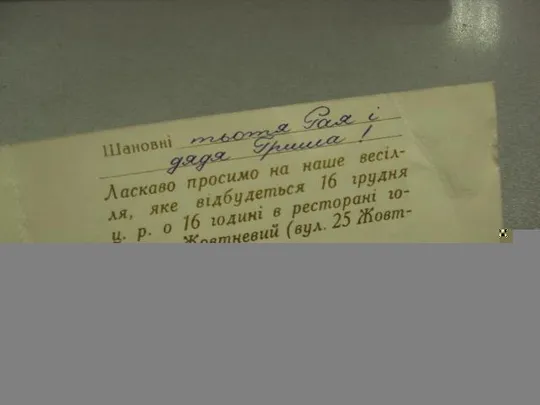 Шановні тьотя Рая і
дядя Гриша!
Ласкаво просимо на наше весіл-
ля, яке відбудеться 16 грудня
ц. р. о 16 годині в ресторані го-
Жовтневий (вул. 25 Жовт-